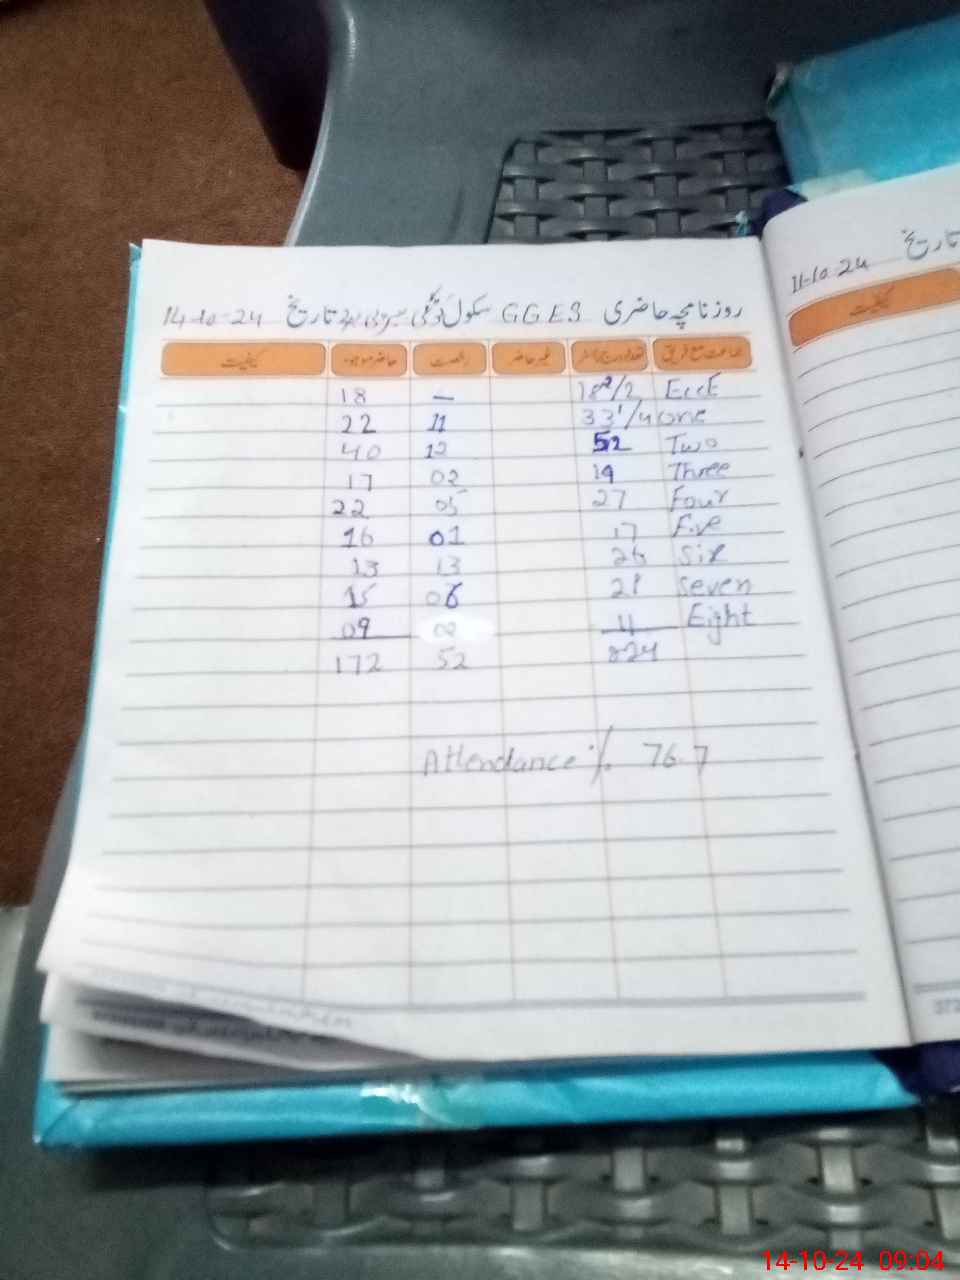 روزنامچہ حاضری GGES سکول تاریخ 14-10-24
جماعت مع فریق تعداد مندرج رجسٹر غیر حاضر رخصت حاضر موجود کیفیت
EccE — 18
one 33 11 22
Two 52 12 40
Three 19 02 17
Four 27 05 22
Five 17 01 16
Six 26 13 13
Seven 21 06 15
Eight 11 02 09
224 52 172
Attendance % 76.7
تاریخ 11-10-24
کیفیت
14-10-24 09:04